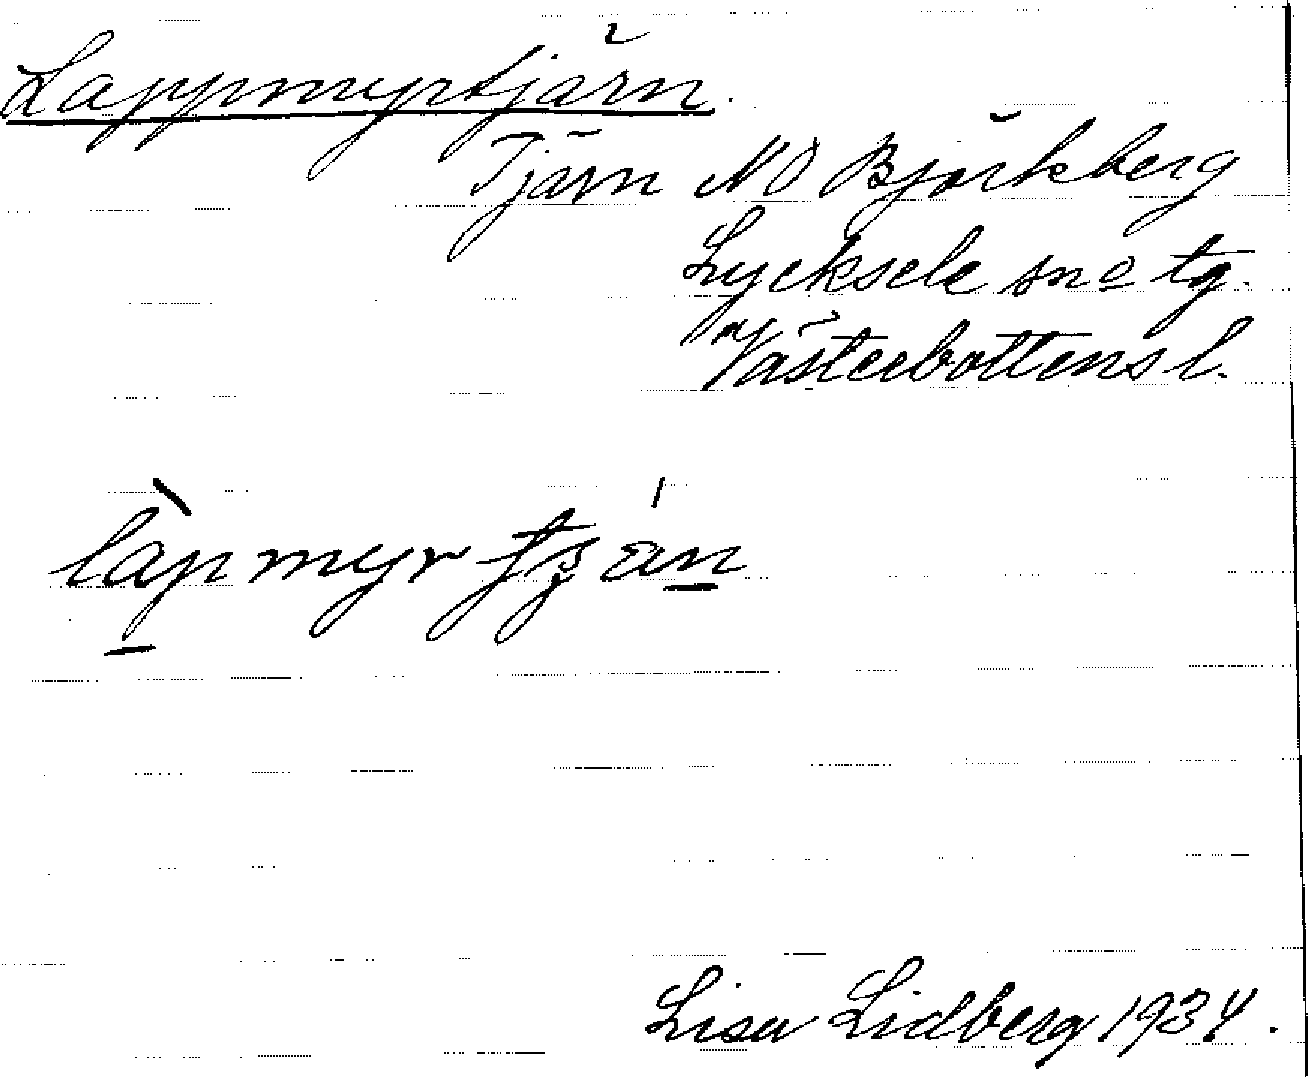 Lappmyrtjärn.
Tjärn NO Björkberg
Lycksele sn o tg.
Västerbottens l.
làpmyrtʒán
Lisa Lidberg 1934.